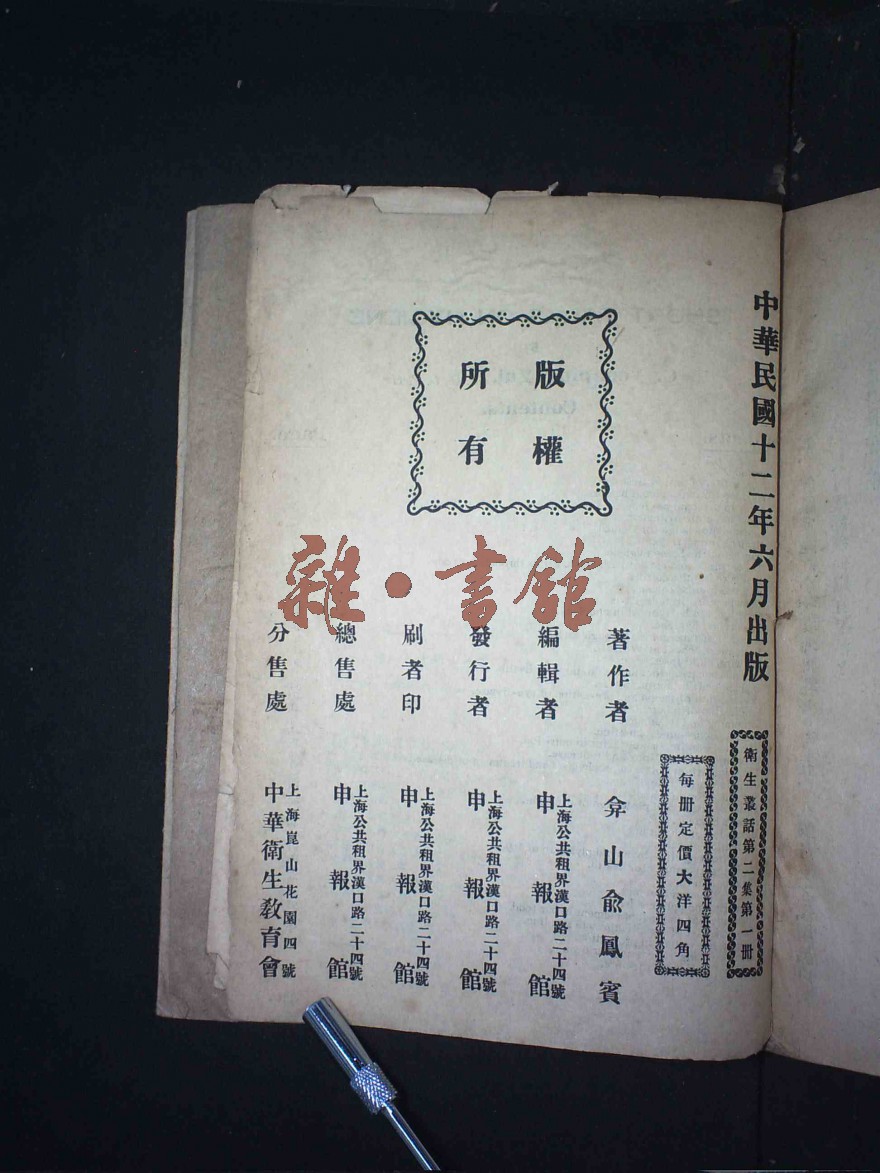 中華民國十二年六月出版
衛生叢話第二集第一冊
每冊定價大洋四角
版權
所有
著作者 弇山俞鳳賓
編輯者 上海公共租界漢口路二十四號
申報館
發行者 上海公共租界漢口路二十四號
申報館
刷者印 上海公共租界漢口路二十四號
申報館
總售處 上海公共租界漢口路二十四號
申報館
分售處 上海崑山花園四號
中華衛生教育會
雜·書館
Contents.